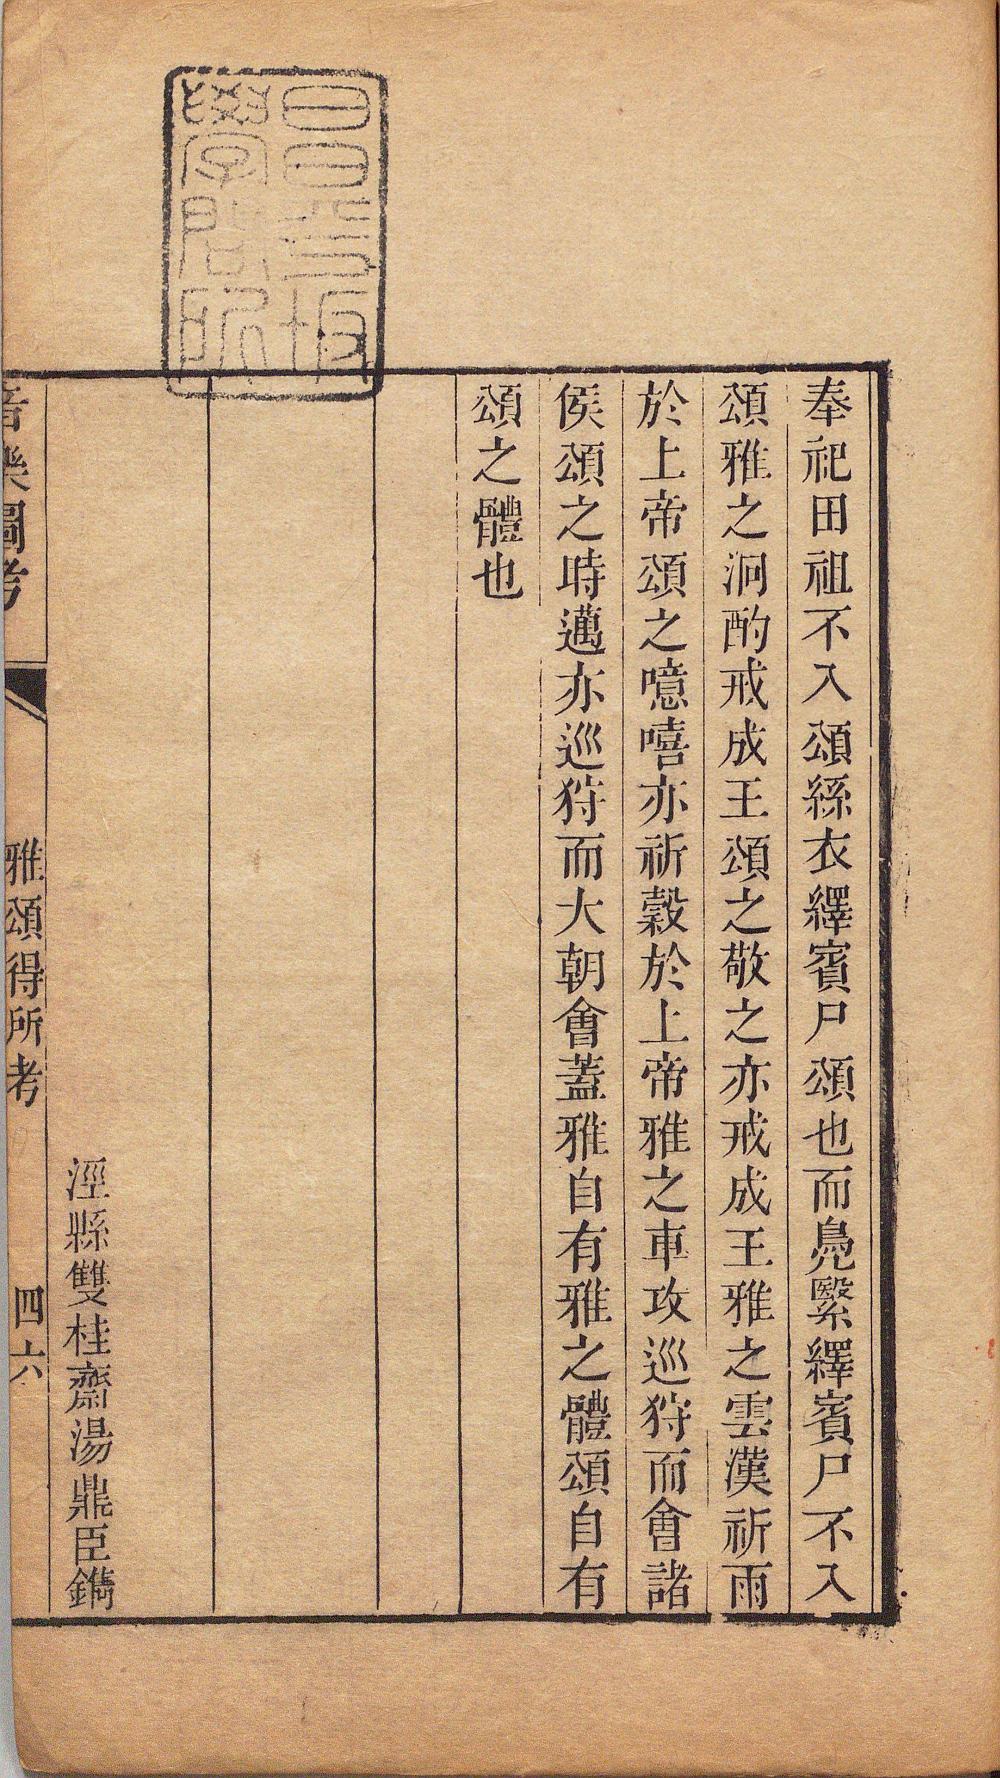 昌平坂
學問所
奉祀田祖不入頌絲衣繹賓尸頌也而鳧繄繹賓尸不入
頌雅之泂酌戒成王頌之敬之亦戒成王雅之雲漢祈雨
於上帝頌之噫嘻亦祈穀於上帝雅之車攻巡狩而會諸
侯頌之時邁亦巡狩而大朝會蓋雅自有雅之體頌自有
頌之體也
涇縣雙桂齋湯鼎臣鐫
音樂圖考
雅頌得所考
四六